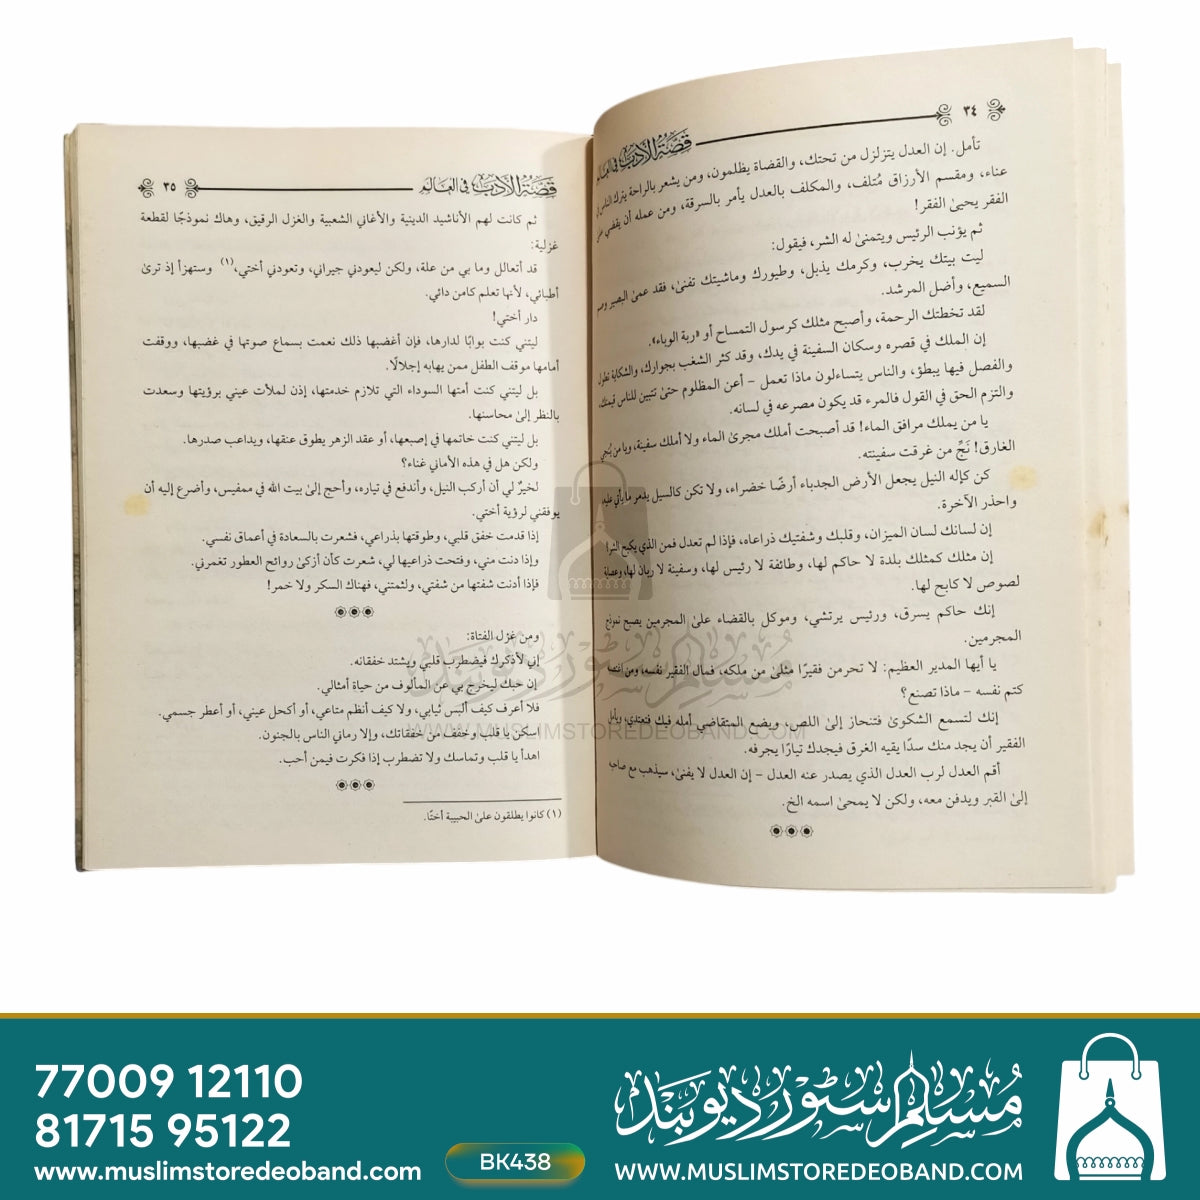 ٣٤
قصة الأدب في العالم
تأمل. إن العدل يتزلزل من تحتك، والقضاة يظلمون، ومن يشعر بالراحة يترك الناس في
عناء، ومقسم الأرزاق مُتلف، والمكلف بالعدل يأمر بالسرقة، ومن عمله أن يقضي على
الفقر يحيىٰ الفقر!
ثم يؤنب الرئيس ويتمنىٰ له الشر، فيقول:
ليت بيتك يخرب، وكرمك يذبل، وطيورك وماشيتك تفنىٰ، فقد عمىٰ البصير وصم
السميع، وأضل المرشد.
لقد تخطتك الرحمة، وأصبح مثلك كرسول التمساح أو «ربة الوباء».
إن الملك في قصره وسكان السفينة في يدك، وقد كثر الشغب بجوارك، والشكاية تطول
والفصل فيها يبطؤ، والناس يتساءلون ماذا تعمل – أعن المظلوم حتىٰ تتبين للناس قيمتك،
والتزم الحق في القول فالمرء قد يكون مصرعه في لسانه.
يا من يملك مرافق الماء! قد أصبحت أملك مجرىٰ الماء ولا أملك سفينة، ويا من يُنجي
الغارق! نَجِّ من غرقت سفينته.
كن كإله النيل يجعل الأرض الجدباء أرضًا خضراء، ولا تكن كالسيل يدمر ما يأتي عليه
واحذر الآخرة.
إن لسانك لسان الميزان، وقلبك وشفتيك ذراعاه، فإذا لم تعدل فمن الذي يكبح الشر!
إن مثلك كمثلك بلدة لا حاكم لها، وطائفة لا رئيس لها، وسفينة لا ربان لها، وعصابة
لصوص لا كابح لها.
إنك حاكم يسرق، ورئيس يرتشي، وموكل بالقضاء علىٰ المجرمين يصبح نموذج
المجرمين.
يا أيها المدير العظيم: لا تحرمن فقيرًا مثلىٰ من ملكه، فمال الفقير نفسه، ومن اغتصبه
كتم نفسه – ماذا تصنع؟
إنك لتسمع الشكوىٰ فتنحاز إلىٰ اللص، ويضع المتقاضي أمله فيك فتعتدي، ويأمل
الفقير أن يجد منك سدًا يقيه الغرق فيجدك تيارًا يجرفه.
أقم العدل لرب العدل الذي يصدر عنه العدل – إن العدل لا يفنىٰ، سيذهب مع صاحبه
إلىٰ القبر ويدفن معه، ولكن لا يمحىٰ اسمه الخ.
قصة الأدب في العالم
٣٥
ثم كانت لهم الأناشيد الدينية والأغاني الشعبية والغزل الرقيق، وهاك نموذجًا لقطعة
غزلية:
قد أتعالل وما بي من علة، ولكن ليعودني جيراني، وتعودني أختي،(١) وستهزأ إذ ترىٰ
أطبائي، لأنها تعلم كامن دائي.
دار أختي!
ليتني كنت بوابًا لدارها، فإن أغضبها ذلك نعمت بسماع صوتها في غضبها، ووقفت
أمامها موقف الطفل ممن يهابه إجلالًا.
بل ليتني كنت أمتها السوداء التي تلازم خدمتها، إذن لملأت عيني برؤيتها وسعدت
بالنظر إلىٰ محاسنها.
بل ليتني كنت خاتمها في إصبعها، أو عقد الزهر يطوق عنقها، ويداعب صدرها.
ولكن هل في هذه الأماني غناء؟
لخيرٌ لي أن أركب النيل، وأندفع في تياره، وأحج إلىٰ بيت الله في ممفيس، وأضرع إليه أن
يوفقني لرؤية أختي.
إذا قدمت خفق قلبي، وطوقتها بذراعي، فشعرت بالسعادة في أعماق نفسي.
وإذا دنت مني، وفتحت ذراعيها لي، شعرت كأن أزكىٰ روائح العطور تغمرني.
فإذا أدنت شفتها من شفتي، ولثمتني، فهناك السكر ولا خمر!
ومن غزل الفتاة:
إني لأذكرك فيضطرب قلبي ويشتد خفقانه.
إن حبك ليخرج بي عن المألوف من حياة أمثالي.
فلا أعرف كيف ألبس ثيابي، ولا كيف أنظم متاعي، أو أكحل عيني، أو أعطر جسمي.
اسكن يا قلب وخفف من خفقاتك، وإلا رماني الناس بالجنون.
اهدأ يا قلب وتماسك ولا تضطرب إذا فكرت فيمن أحب.
(١) كانوا يطلقون علىٰ الحبيبة أختًا.
مسلم سٹور دیوبند
WWW.MUSLIMSTOREDEOBAND.COM
77009 12110
81715 95122
www.muslimstoredeoband.com
BK438
مسلم سٹور دیوبند
WWW.MUSLIMSTOREDEOBAND.COM